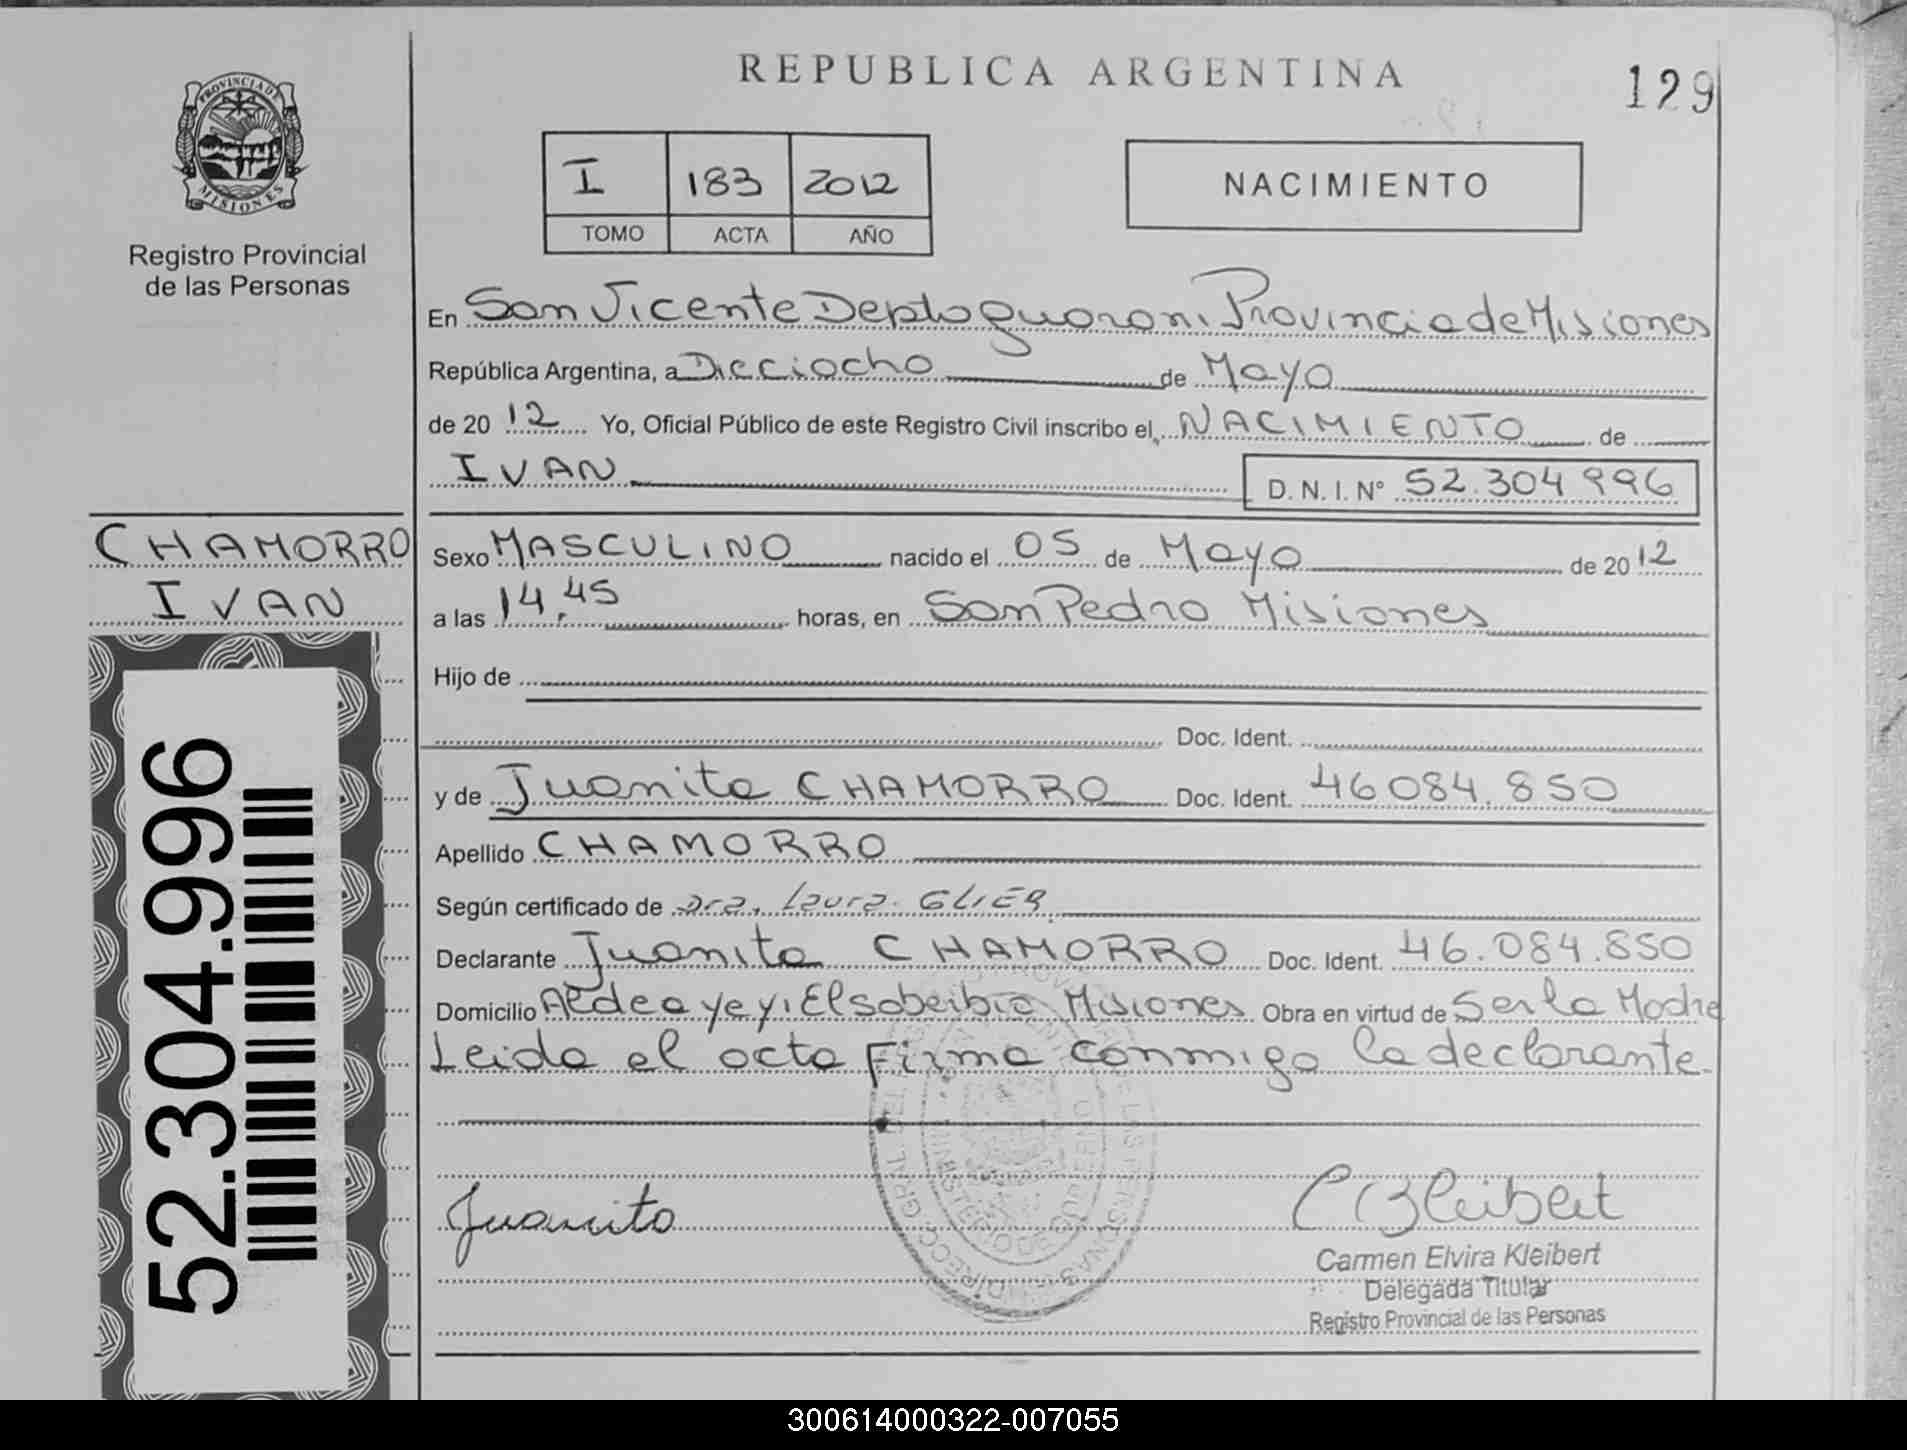 REPUBLICA ARGENTINA
129
PROVINCIA DE
MISIONES
Registro Provincial
de las Personas
I 183 2012
TOMO ACTA AÑO
NACIMIENTO
En San Vicente Depto guarani Provincia de Misiones
República Argentina, a Dieciocho de Mayo
de 2012 Yo, Oficial Público de este Registro Civil inscribo el, NACIMIENTO de
IVAN D. N. I. N° 52.304 996
CHAMORRO
IVAN
Sexo MASCULINO nacido el 05 de Mayo de 2012
a las 14.45 horas, en San Pedro Misiones
Hijo de
Doc. Ident.
y de Juanita CHAMORRO Doc. Ident. 46084.850
Apellido CHAMORRO
Según certificado de Dra. Laura. GLIER
Declarante Juanita CHAMORRO Doc. Ident. 46.084.850
Domicilio Aldea yeyi El soberbio Misiones Obra en virtud de Ser la Madre
Leida el acta Firma conmigo la declarante.
52.304.996
Juanita
CBleibert
Carmen Elvira Kleibert
Delegada Titular
Registro Provincial de las Personas
MINISTERIO DE GOBIERNO
300614000322-007055